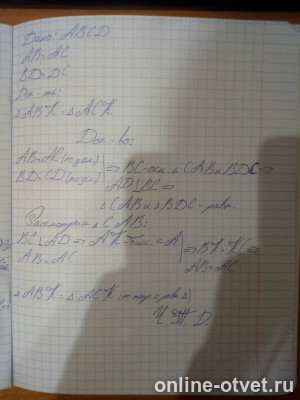 Дано: ABCD
AB=AC
BD=DC
Док-ть:
△ABK=△ACK
Док-во:
AB=AC(по усл.)
BD=CD(по усл.) => BC-осн. △CAB и BDC=>
AD⊥BC=>
△CAB и △BDC-равн.
Рассмотрим △CAB:
BC⊥AD => AK-бисс. <A => BK=KC =>
AB=AC
AB=AC
△ABK=△ACK
Ч.Т.Д.
online-otvet.ru